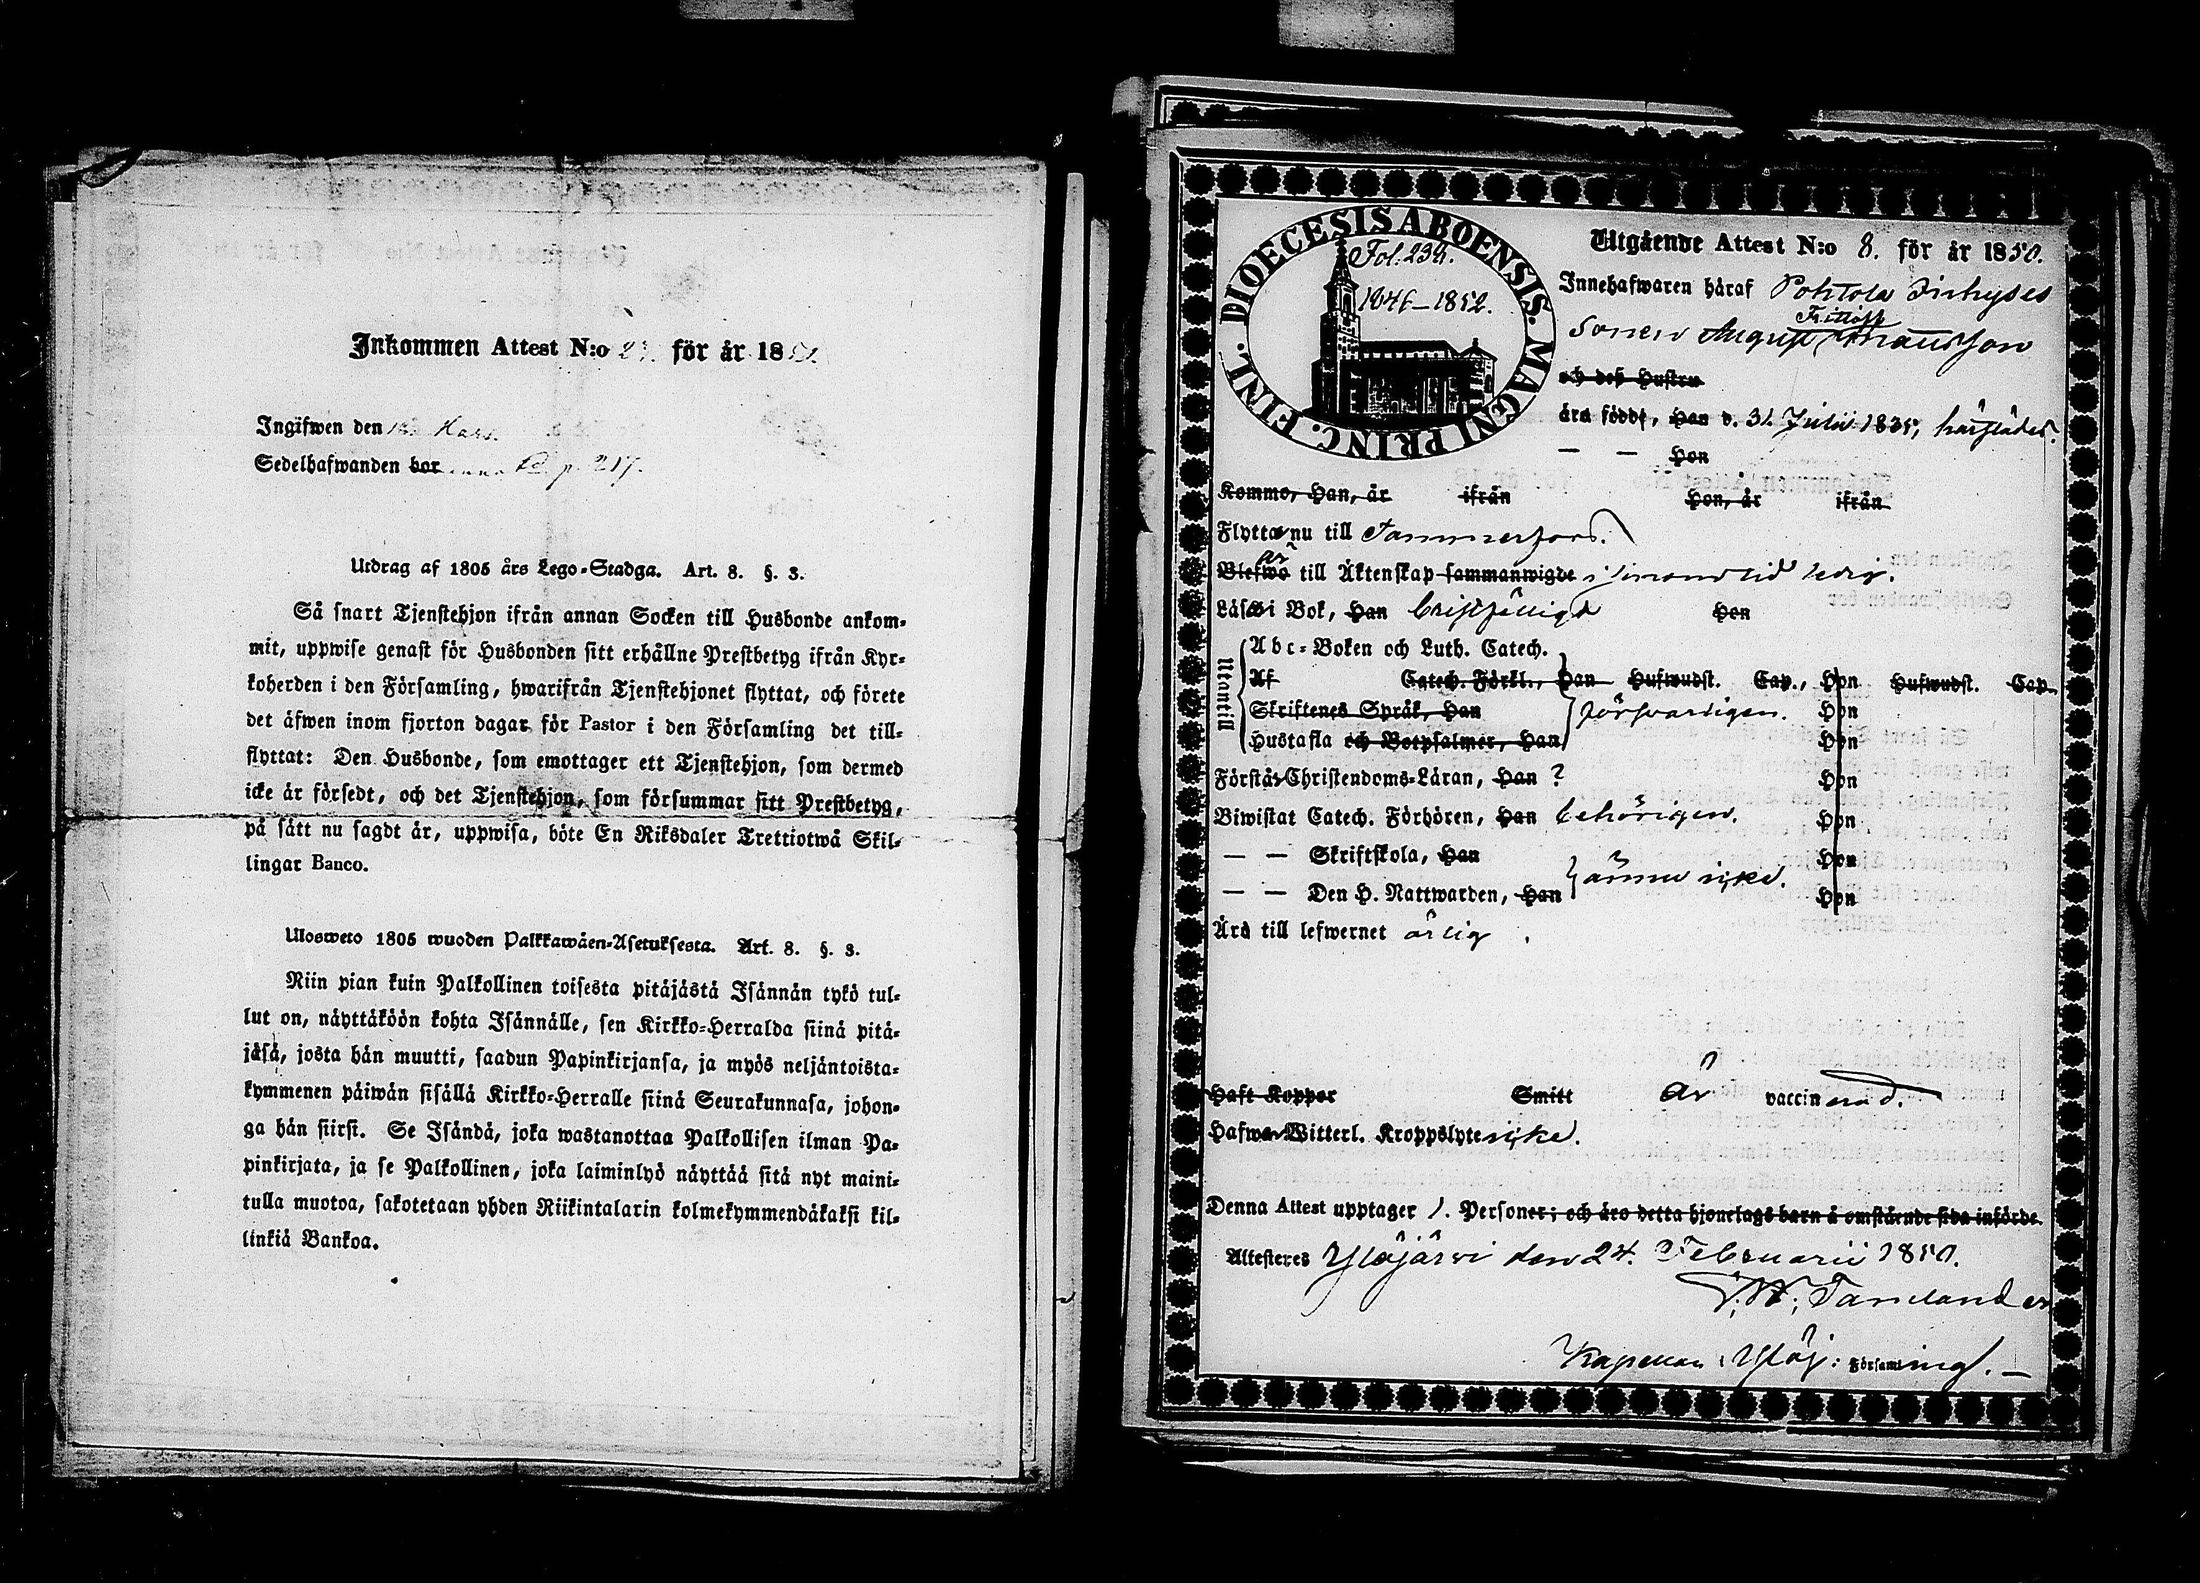 Inkommen Attest N:o 27. för år 1850
Ingifwen den Mars
Sedelhafwanden bor p. 217.
Utdrag af 1805 års Lego-Stadga. Art. 8. §. 3.
Så snart Tjenstehjon ifrån annan Socken till Husbonde ankom-
mit, uppwise genast för Husbonden sitt erhållne Prestbetyg ifrån Kyr-
koherden i den Församling, hwarifrån Tjenstehjonet flyttat, och förete
det äfwen inom fjorton dagar för Pastor i den Församling det till-
flyttat: Den Husbonde, som emottager ett Tjenstehjon, som dermed
icke är försedt, och det Tjenstehjon, som försummar sitt Prestbetyg,
på sätt nu sagdt är, uppwisa, böte En Riksdaler Trettiotwå Skil-
lingar Banco.
Ulosweto 1805 wuoden Palkkawäen-Asetuksesta. Art. 8. §. 3.
Niin pian kuin Palkollinen toisesta pitäjästä Isännän tykö tul-
lut on, näyttäköön kohta Isännälle, sen Kirkko-Herralda siinä pitä-
jäsä, josta hän muutti, saadun Papinkirjansa, ja myös neljäntoista-
kymmenen päiwän sisällä Kirkko-Herralle siinä Seurakunnasa, johon-
ga hän siirsi. Se Isändä, joka wastanottaa Palkollisen ilman Pa-
pinkirjata, ja se Palkollinen, joka laiminlyö näyttää sitä nyt maini-
tulla muotoa, sakotetaan yhden Riikintalarin kolmekymmendäkaksi kil-
linkiä Bankoa.
DIOECESIS ABOENSIS. MAGNI PRINC. FINL.
Fol. 234.
1846-1852.
Utgående Attest N:o 8. för år 1850.
Innehafwaren häraf Pohtola Inhyses
Frittoff
sonen August Mattsson
och deß Hustru
ära född, Han d. 31 Julii 1835, härstädes.
— — Hon
Kommo, Han, år ifrån Hon, år ifrån
Flytta nu till Tammerfors.
är
Blefwo till Äktenskap sammanwigde ledig.
Läsa i Bok, Han Bristfälligt Hon
Utantill
Abc-Boken och Luth. Catech.
Af Catech. Förkl., Han Hufwudst. Cap., Hon Hufwudst. Cap.
Skriftenes Språk, Han försvarligen. Hon
Hustafla och Botpsalmer, Han Hon
Förstår Christendoms-Läran, Han ? Hon
Biwistat Catech. Förhören, Han behörigen. Hon
— — Skriftskola, Han ännu icke. Hon
— — Den H. Nattwarden, Han Hon
Ära till lefwernet ärlig.
Haft Koppor Smitt är vaccinerad.
Hafwa Witterl. Kroppslyte icke.
Denna Attest upptager 1. Personer; och äro detta hjonelags barn å omstående sida införde.
Attesteres Ylöjärvi den 24. Februarii 1850.
Tamelander
Kapellan i Ylöj: Församling. —